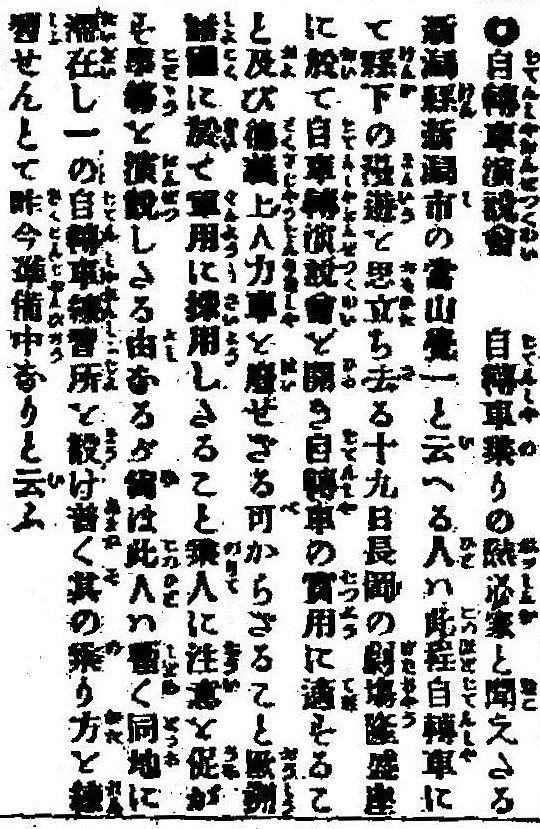 ●自轉車演說會　自轉車乘りの熱心家と聞えたる
新潟縣新潟市の富山覺一と云へる人ハ此程自轉車に
て縣下の漫遊を思立ち去る十九日長岡の劇塲隆盛座
に於て自車轉演說會を開き自轉車の實用に適するこ
と及び德義上人力車を廢せざる可からざること歐洲
諸國に於て軍用に採用したること乘人に注意を促が
す事等を演說したる由なるが尙は此人ハ暫く同地に
滯在し一の自轉車練習所を設け普く其の乘り方を練
習せんとて昨今準備中なりと云ふ